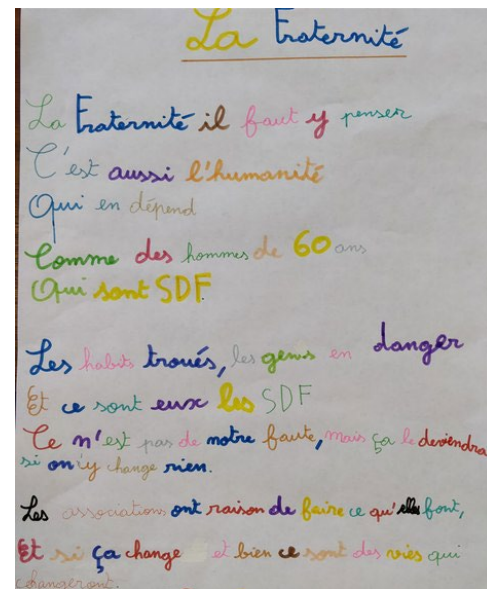 La Fraternité
La Fraternité il faut y penser
C'est aussi l'humanité
Qui en dépend
Comme des hommes de 60 ans
Qui sont SDF.
Les habits troués, les gens en danger
Et ce sont eux les SDF
Ce n'est pas de notre faute, mais ça le deviendra
si on y change rien.
Les associations ont raison de faire ce qu'elles font,
Et si ça change et bien ce sont des vies qui
changeront.